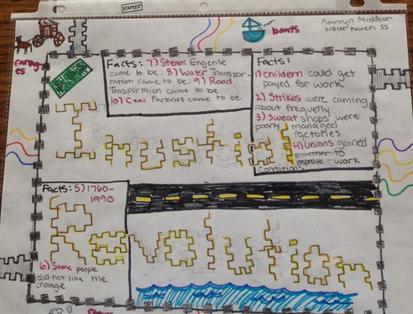 STAPLES
Middour
boats
Facts: 7) Steam Engense
came to be. 8) Water Transpor-
tation came to be. 9) Road
Trasportation came to be
10) Coal Factories came to be.
Facts:
1) childern could get
payed for work
2) Strikes were coming
about frequently
3) Sweat shops were
poorly managed
factories
4) Unions gained
to
improve work
conditions
Industrial
Facts: 5) 1760-
1990
Revolution
6) Some people
did not like the
change